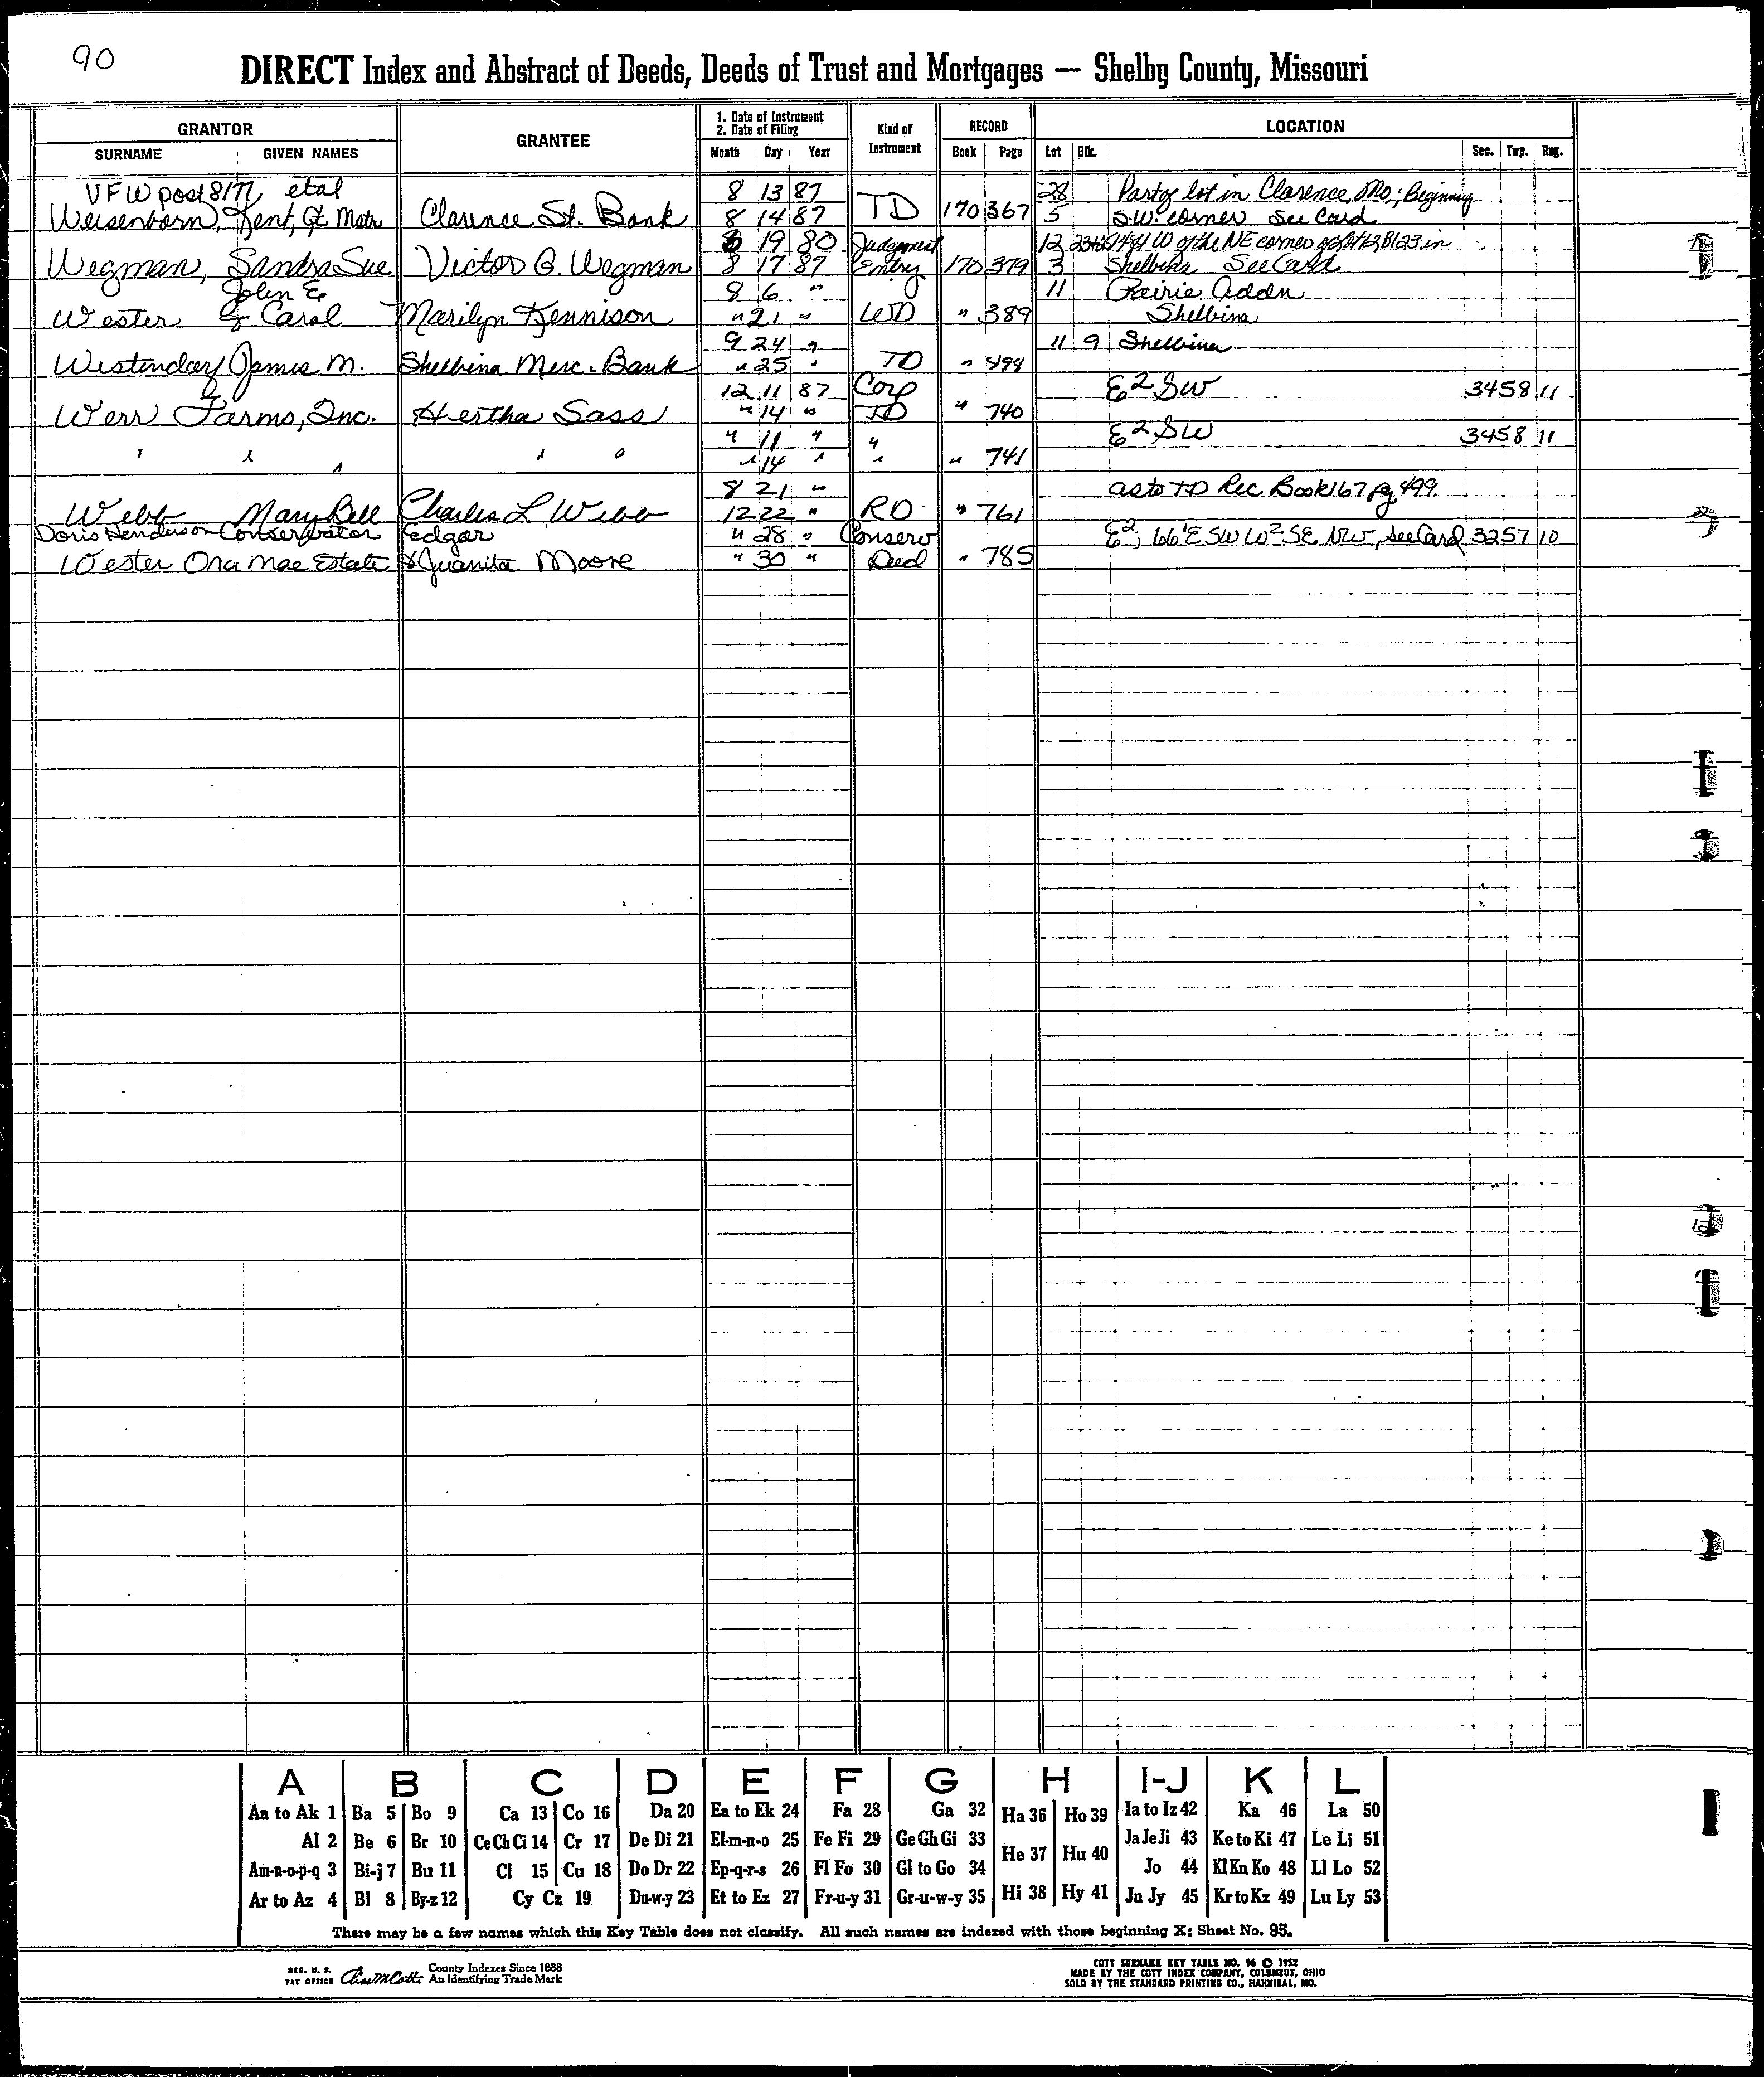 90
DIRECT Index and Abstract of Deeds, Deeds of Trust and Mortgages — Shelby County, Missouri
GRANTOR GRANTEE 1. Date of Instrument 2. Date of Filing Kind of Instrument RECORD LOCATION
SURNAME GIVEN NAMES Month Day Year Book Page Lot Blk. Sec. Twp. Rng.
VFW post 8177 etal 8 13 87 28 Part of lot in Clarence, Mo.; Beginning
Weisenborn, Kent, Qt Mstr Clarence St. Bank 8 14 87 TD 170 367 5 S.W. corner See Card
19 80 Judgment 12 W of the NE corner of in
Wegman, Sandra Sue Victor G. Wegman 8 17 87 Entry 170 379 3 Shelbina See Card
John E. 8 6 " 11 Prairie Addn
Wester & Carol Marilyn Kennison " 21 " WD " 389 Shelbina
9 24 " 11 9 Shelbina
Westendorf James M. Shelbina Merc. Bank " 25 " TD "
12 11 87 Corp E2 SW 34 58 11
Werr Farms, Inc. Hertha Sass " 14 " TD " 740
" 11 " " E2 SW 34 58 11
" " " " " " 14 " " " 741
8 21 " as to TD Rec Book 167 pg 499.
Webb Mary Bell Charles L Webb 12 22 " RD " 761
Doris Henderson Conservator Edgar " 28 " Conserv E2, 66' E SW W2 SE NW, See Card 32 57 10
Wester Ora Mae Estate & Juanita Moore " 30 " Deed " 785
A B C D E F G H I-J K L
Aa to Ak 1 Ba 5 Bo 9 Ca 13 Co 16 Da 20 Ea to Ek 24 Fa 28 Ga 32 Ha 36 Ho 39 Ia to Iz 42 Ka 46 La 50
Al 2 Be 6 Br 10 Ce Ch Ci 14 Cr 17 De Di 21 El-m-n-o 25 Fe Fi 29 Ge Gh Gi 33 He 37 Hu 40 Ja Je Ji 43 Ke to Ki 47 Le Li 51
Am-n-o-p-q 3 Bi-j 7 Bu 11 Cl 15 Cu 18 Do Dr 22 Ep-q-r-s 26 Fl Fo 30 Gl to Go 34 Jo 44 Kl Kn Ko 48 Ll Lo 52
Ar to Az 4 Bl 8 By-z 12 Cy Cz 19 Du-w-y 23 Et to Ez 27 Fr-u-y 31 Gr-u-w-y 35 Hi 38 Hy 41 Ju Jy 45 Kr to Kz 49 Lu Ly 53
There may be a few names which this Key Table does not classify. All such names are indexed with those beginning X; Sheet No. 95.
REG. U. S. PAT OFFICE County Indexes Since 1888 An Identifying Trade Mark
COTT SURNAME KEY TABLE NO. 96 © 1952
MADE BY THE COTT INDEX COMPANY, COLUMBUS, OHIO
SOLD BY THE STANDARD PRINTING CO., HANNIBAL, MO.